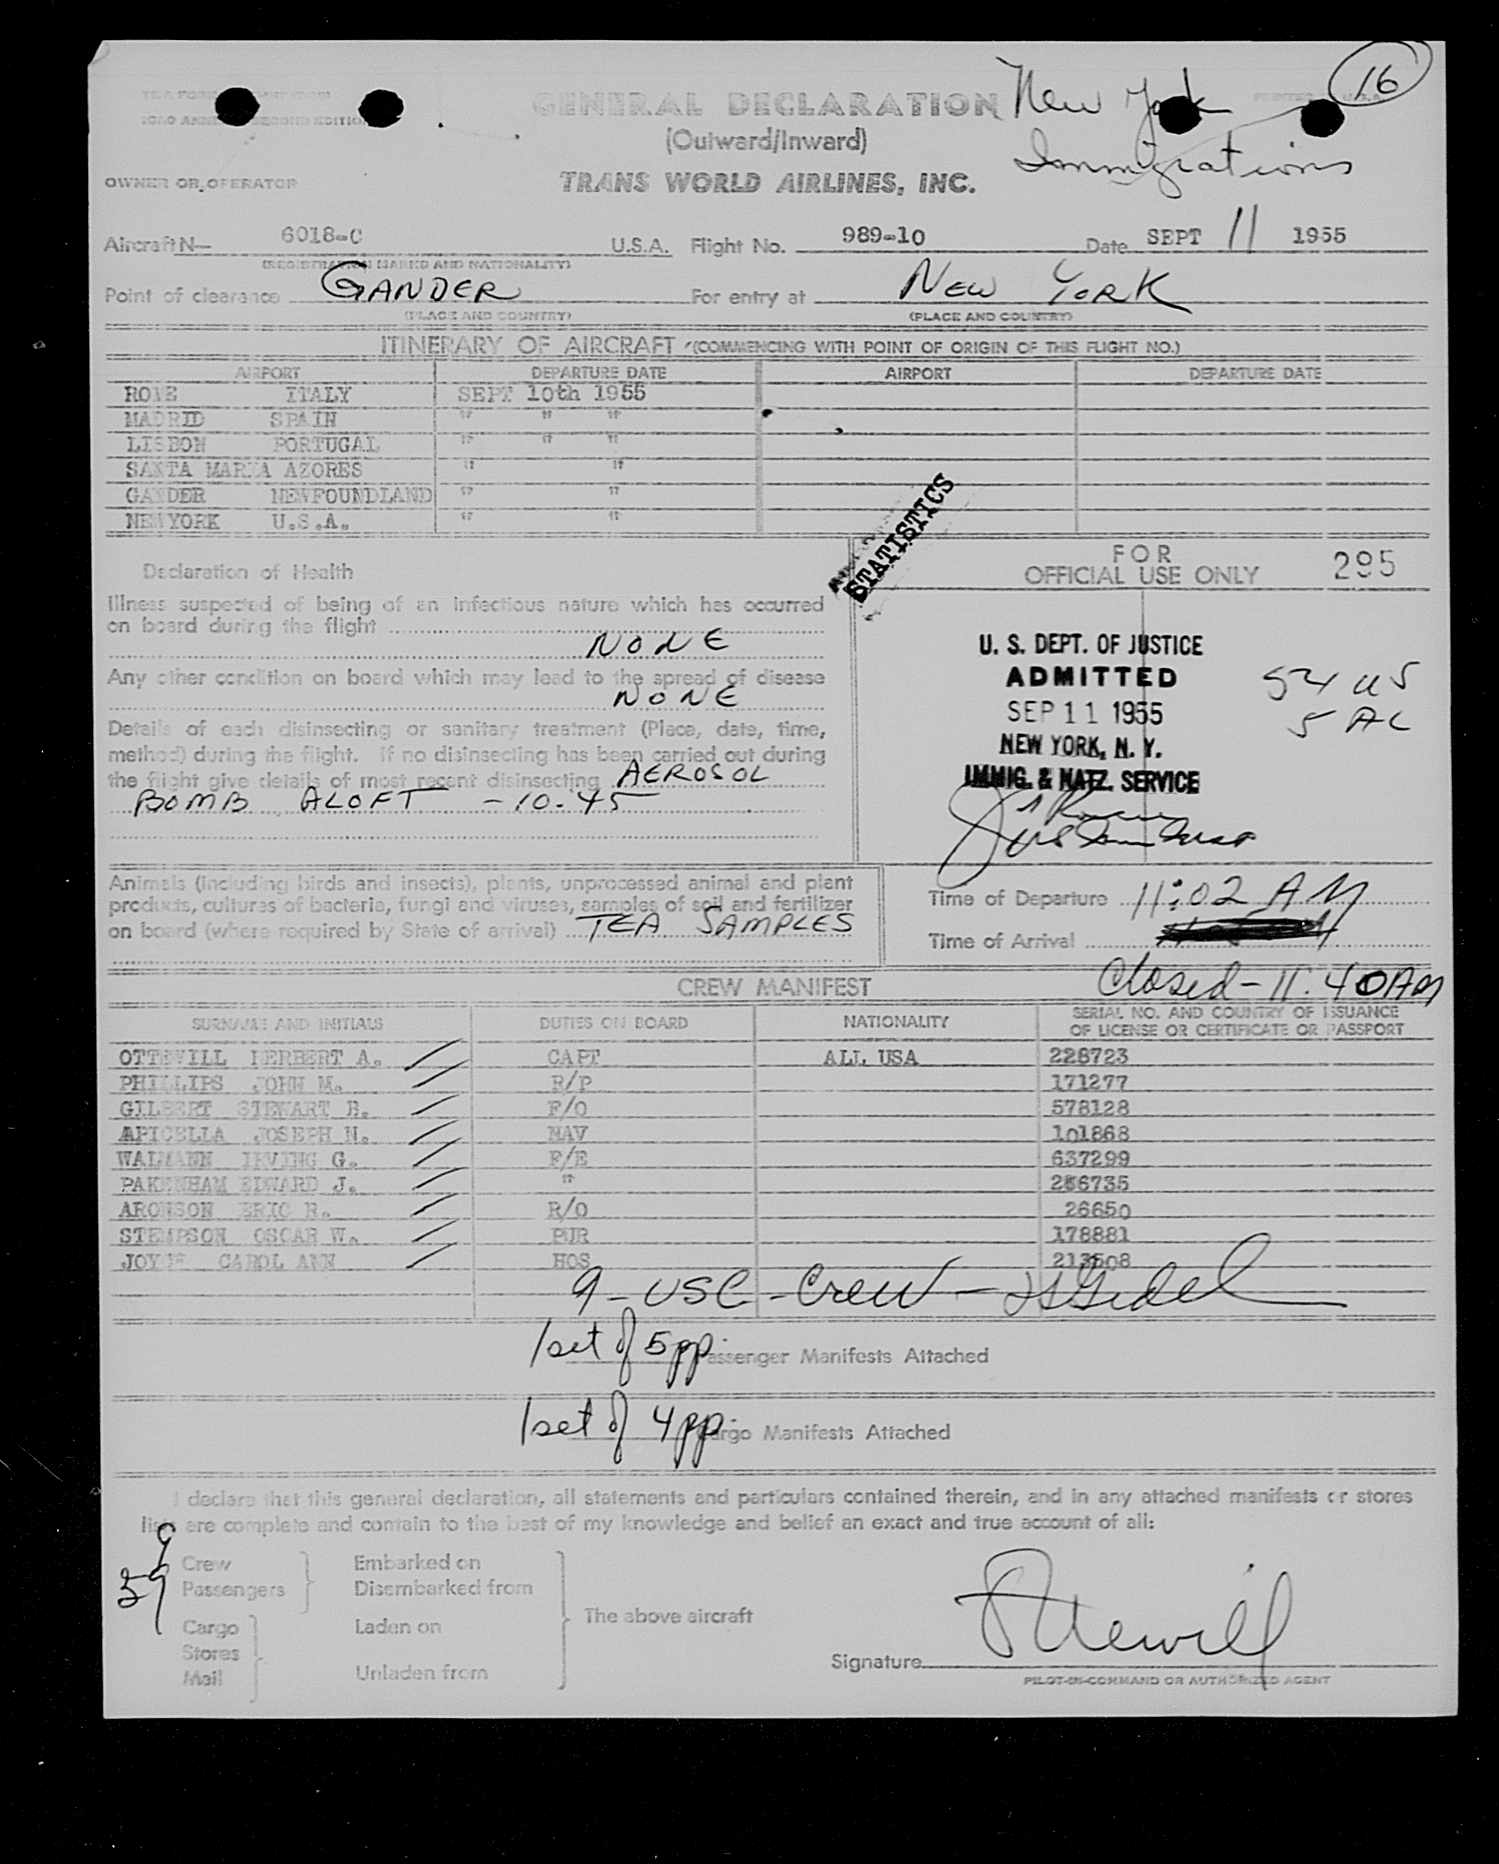 GENERAL DECLARATION
New York
16
(Outward/Inward)
Immigrations
OWNER OR OPERATOR
TRANS WORLD AIRLINES, INC.
Aircraft N— 6018-C U.S.A. Flight No. 989-10 Date SEPT 11 1955
(REGISTRATION MARKED AND NATIONALITY)
Point of clearance GANDER For entry at NEW YORK
(PLACE AND COUNTRY) (PLACE AND COUNTRY)
ITINERARY OF AIRCRAFT (COMMENCING WITH POINT OF ORIGIN OF THIS FLIGHT NO.)
AIRPORT DEPARTURE DATE AIRPORT DEPARTURE DATE
ROME ITALY SEPT 10th 1955
MADRID SPAIN " " "
LISBON PORTUGAL " " "
SANTA MARIA AZORES " "
GANDER NEWFOUNDLAND " "
NEW YORK U.S.A. " "
STATISTICS
Declaration of Health
FOR
OFFICIAL USE ONLY 295
Illness suspected of being of an infectious nature which has occurred
on board during the flight
NONE
Any other condition on board which may lead to the spread of disease
NONE
Details of each disinsecting or sanitary treatment (Place, date, time,
method) during the flight. If no disinsecting has been carried out during
the flight give details of most recent disinsecting AEROSOL
BOMB ALOFT - 10.45
U. S. DEPT. OF JUSTICE
ADMITTED
SEP 11 1955
NEW YORK, N. Y.
IMMIG. & NATZ. SERVICE
54 US
5 AL
Animals (including birds and insects), plants, unprocessed animal and plant
products, cultures of bacteria, fungi and viruses, samples of soil and fertilizer
on board (where required by State of arrival) TEA SAMPLES
Time of Departure 11:02 AM
Time of Arrival
Closed - 11:40 AM
CREW MANIFEST
SURNAME AND INITIALS DUTIES ON BOARD NATIONALITY SERIAL NO. AND COUNTRY OF ISSUANCE
OF LICENSE OR CERTIFICATE OR PASSPORT
OTTEWILL HERBERT A. CAPT ALL USA 228723
PHILLIPS JOHN M. R/P 171277
GILBERT STEWART B. F/O 578128
APICELLA JOSEPH N. NAV 101868
WALMANN IRVING G. F/E 637299
PAKENHAM EDWARD J. " 286735
ARONSON ERIC R. R/O 26650
STEMPSON OSCAR W. PUR 178881
JOYCE CAROL ANN HOS 213508
9 - USC - Crew -
1 set of 5 pp. Passenger Manifests Attached
1 set of 4 pp. Cargo Manifests Attached
I declare that this general declaration, all statements and particulars contained therein, and in any attached manifests or stores
lists are complete and contain to the best of my knowledge and belief an exact and true account of all:
9 Crew Embarked on
59 Passengers Disembarked from
The above aircraft
Cargo Laden on
Stores
Mail Unladen from
Signature
PILOT-IN-COMMAND OR AUTHORIZED AGENT